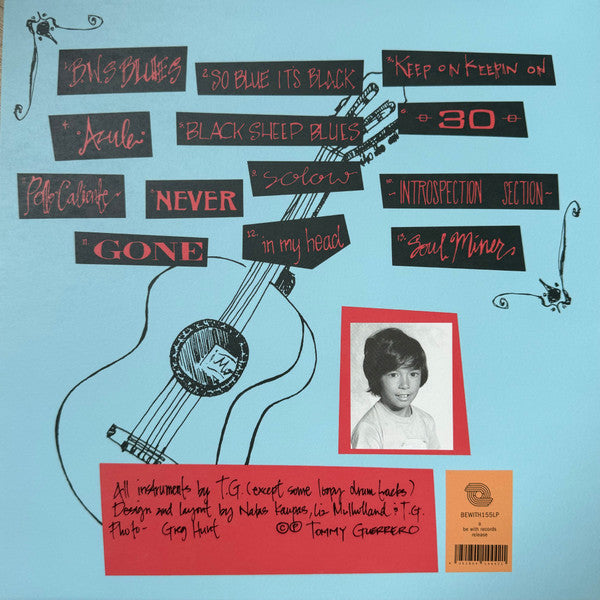 1. BWS BLUES
2. SO BLUE IT'S BLACK
3. KEEP ON KEEPIN ON
4. Azule
5. BLACK SHEEP BLUES
6. 30
7. Pollo Caliente~
8. NEVER
9. SOLOW
10. ~INTROSPECTION SECTION~
11. GONE
12. in my head
13. Soul Miner
T.G.
All instruments by T.G. (except some loopy drum tracks)
Design and layout by Natas Kaupas, Liz Mulholland & T.G.
Photo- Greg Hunt ©℗ TOMMY GUERRERO
BEWITH155LP
a
be with records
release